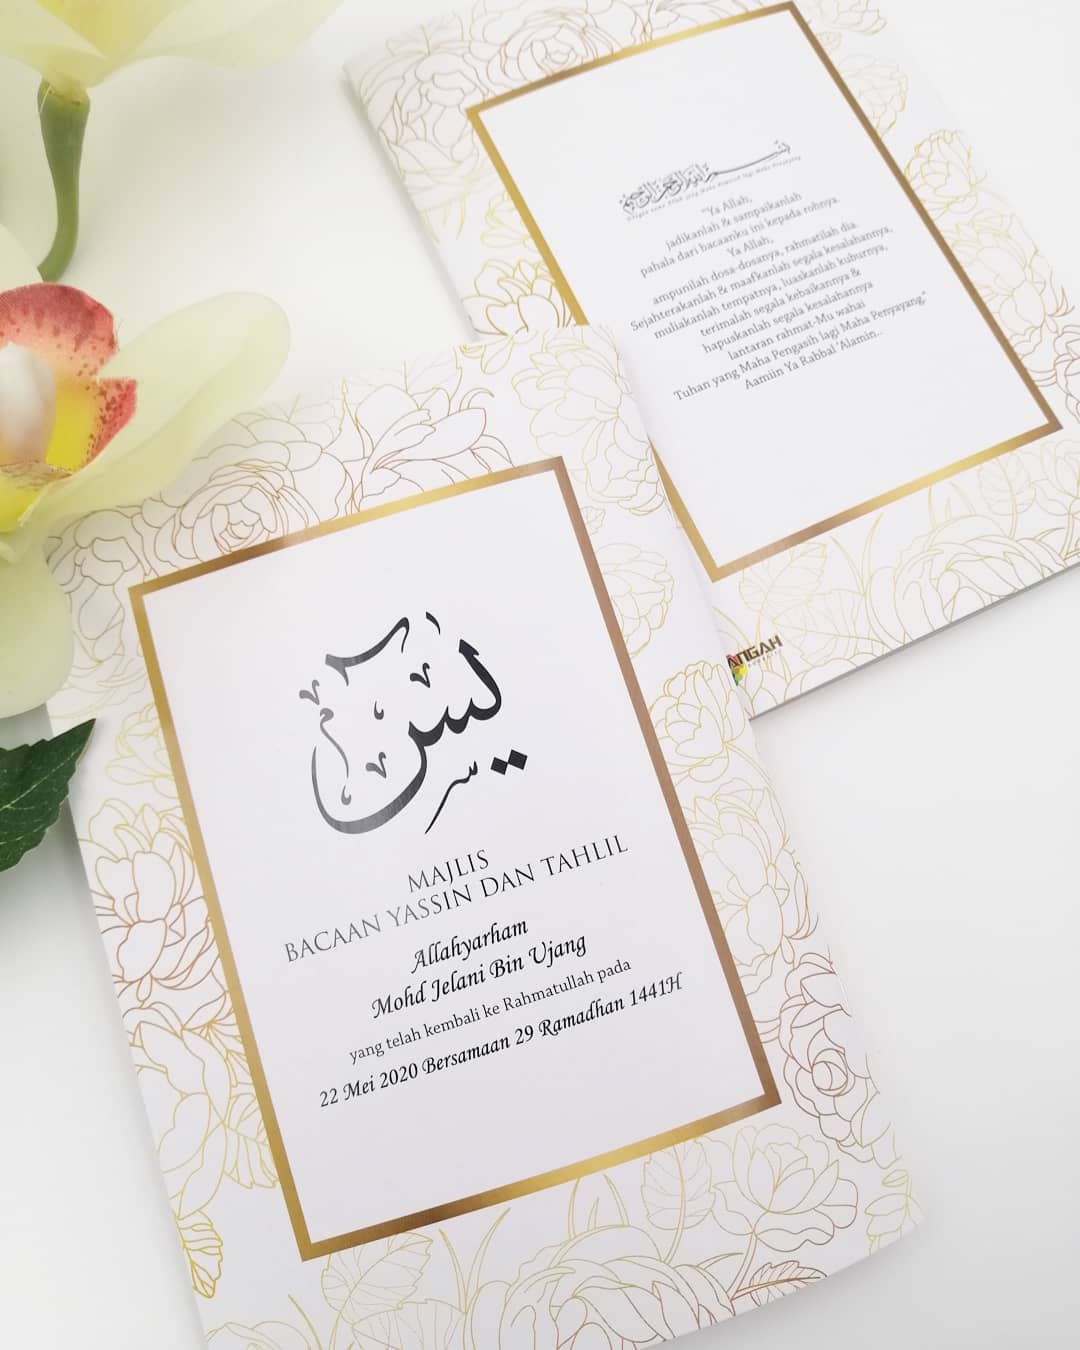 يس
MAJLIS
BACAAN YASSIN DAN TAHLIL
Allahyarham
Mohd Jelani Bin Ujang
yang telah kembali ke Rahmatullah pada
22 Mei 2020 Bersamaan 29 Ramadhan 1441H
بسم الله الرحمن الرحيم
Dengan nama Allah yang Maha Pemurah lagi Maha Penyayang
"Ya Allah,
jadikanlah & sampaikanlah
pahala dari bacaanku ini kepada rohnya.
Ya Allah,
ampunilah dosa-dosanya, rahmatilah dia.
Sejahterakanlah & maafkanlah segala kesalahannya,
muliakanlah tempatnya, luaskanlah kuburnya,
terimalah segala kebaikannya &
hapuskanlah segala kesalahannya
lantaran rahmat-Mu wahai
Tuhan yang Maha Pengasih lagi Maha Penyayang."
Aamiin Ya Rabbal 'Alamin..
ANGAH